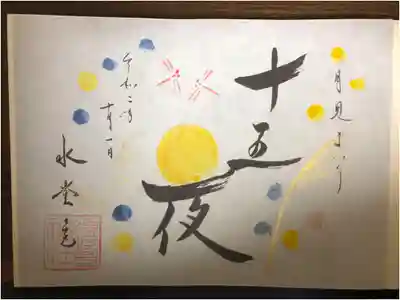 月見まいり
十五夜
令和二年
十月一日
水堂